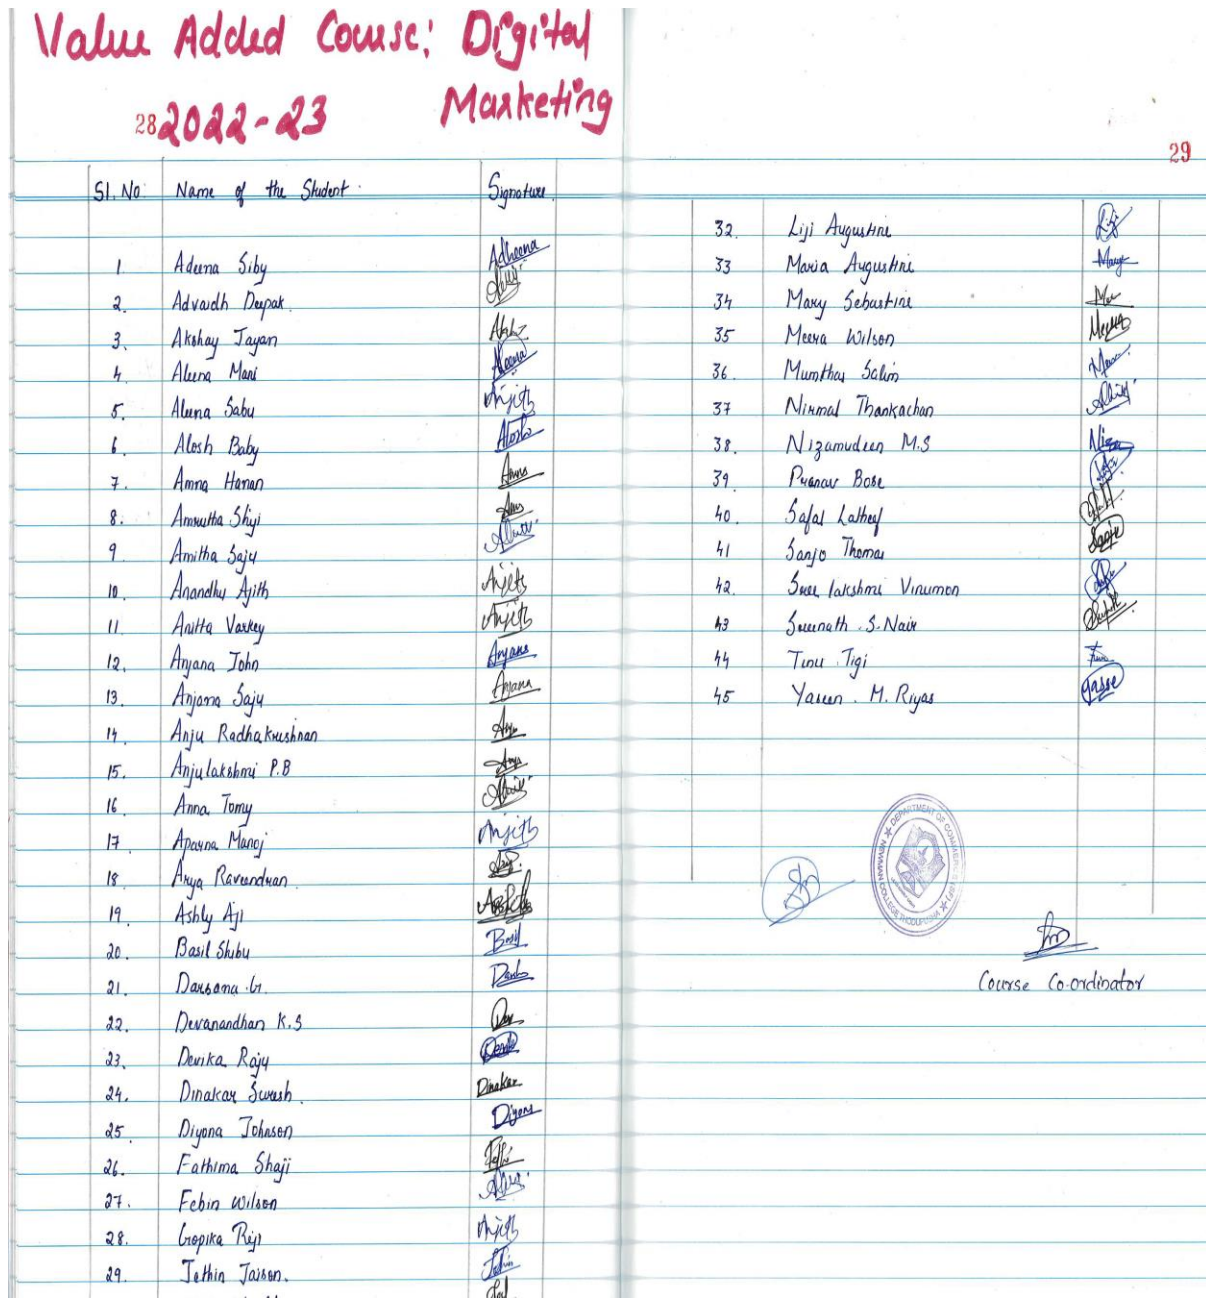 Value Added Course: Digital
Marketing
28 2022-23
Sl. No. Name of the Student Signature
1 Adeena Siby Adheena
2. Advaidh Deepak
3. Akshay Jayan
4 Aleena Mani Aleena
5. Aleena Sabu Anjith
6. Alosh Baby Alosh
7. Amna Hanan
8. Amrutha Shyji
9 Amitha Saju
10. Anandhu Ajith Anjith
11. Anitta Varkey Anjith
12. Anjana John Anjana
13. Anjana Saju Anjana
14. Anju Radhakrushnan Anju
15. Anjulakshmi P.B
16 Anna Tomy
17 Aparna Manoj Anjith
18 Arya Raveendran
19. Ashly Aji
20. Basil Shibu Basil
21. Darsana .G.
22. Devanandhan K.S Dev
23. Devika Raju
24. Dinakar Suresh Dinakar
25 Diyona Johnson Diyona
26. Fathima Shaji
27. Febin Wilson
28. Gopika Reji Anjith
29. Jethin Jaison. Jethin
29
32. Liji Augustine Liji
33 Maria Augustine
34 Mary Sebastine
35 Meera Wilson Meera
36. Mumthas Salim
37 Nirmal Thankachan
38. Nizamudeen M.S
39. Pranav Bose
40. Safal Latheef
41 Sanjo Thomas Sanjo
42. Sree lakshmi Vinumon
43 Sreenath .S. Nair
44 Tinu Tigi
45 Yaseen . M. Riyas Yasse
DEPARTMENT OF COMMERCE
NEWMAN COLLEGE THODUPUZHA
Course Co-ordinator